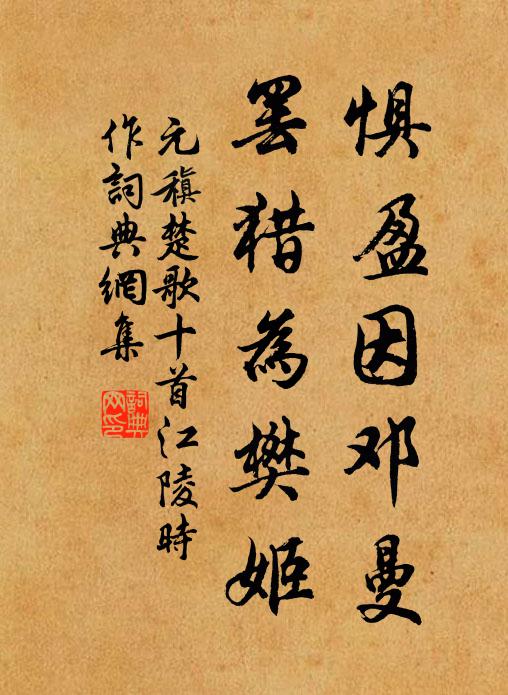 惧盈因邓曼
罢猎为樊姬
元稹楚歌十首江陵時
作詞典網集
詞典网印